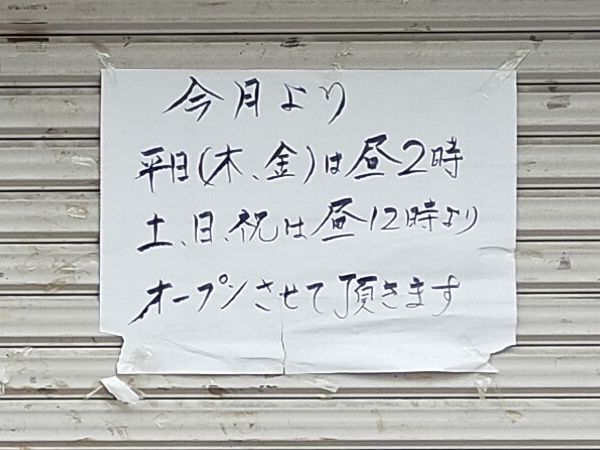 今月より
平日(木、金)は昼2時
土、日、祝は昼12時より
オープンさせて頂きます